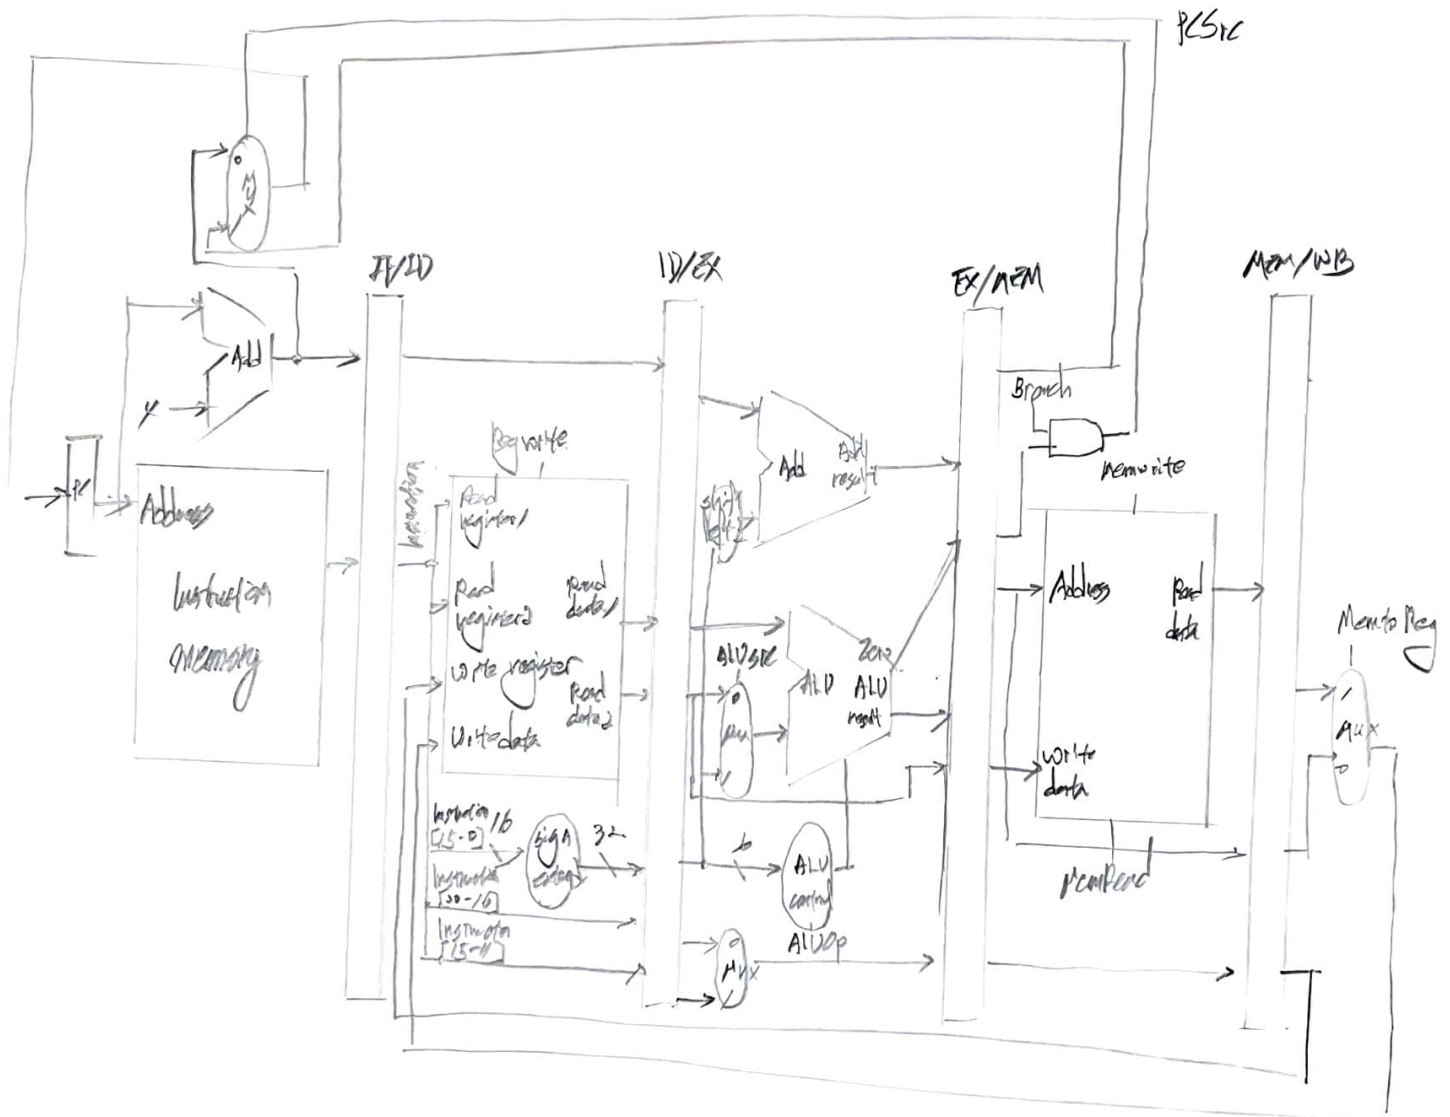 PCSrc
0
Mux
1
IF/ID
ID/EX
EX/MEM
MEM/WB
Add
4
PC
Address
Instruction
memory
Instruction
Regwrite
Read
register1
Read
register2
Write register
Write data
Read
data1
Read
data2
Instruction
[15-0]
16
Sign
32
Instruction
[20-16]
Instruction
[15-11]
Shift
left2
Add
Add
result
ALUSrc
0
Mux
1
ALU
Zero
ALU
result
6
ALU
control
ALUOp
0
Mux
1
Branch
Memwrite
Address
Read
data
Write
data
MemRead
MemtoReg
1
Mux
0